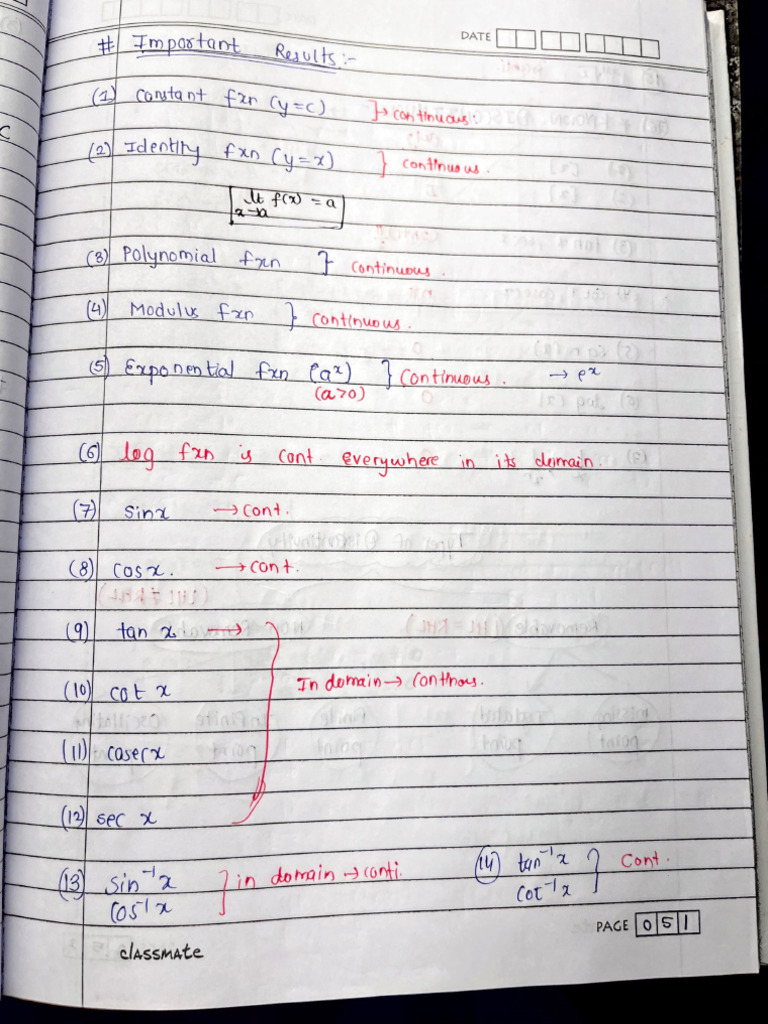 DATE
# Important Results:-
(1) Constant fxn (y=c) }→ continuous.
(2) Identity fxn (y=x) } continuous.
lt f(x) = a
x→a
(3) Polynomial fxn } continuous.
(4) Modulus fxn } continuous.
(5) Exponential fxn (a^x) } continuous. → e^x
(a>0)
(6) log fxn is cont. everywhere in its domain.
(7) sinx → cont.
(8) cosx. → cont.
(9) tan x →
In domain → continous.
(10) cot x
(11) cosecx
(12) sec x
(13) sin⁻¹x } in domain → conti.
cos⁻¹x
(14) tan⁻¹x } cont.
cot⁻¹x
PAGE 051
classmate